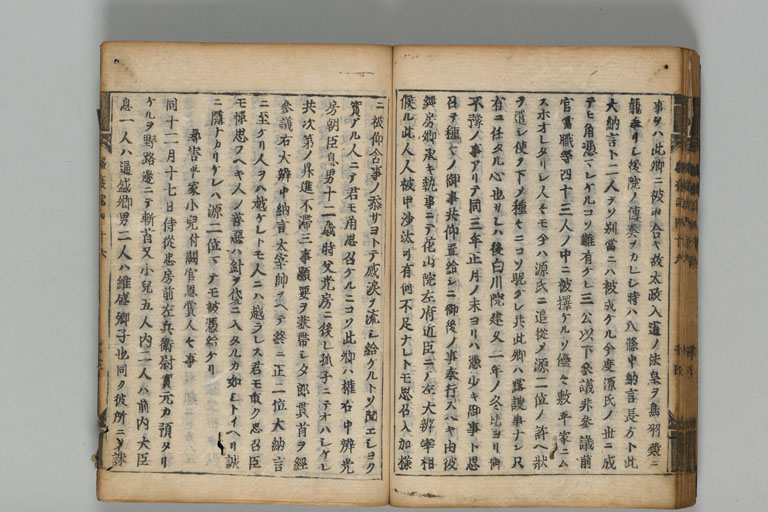 事ヲハ此卿ニ被申合キ故太政入道ノ法皇ヲ鳥羽殿ニ
籠奉リシ後院ノ傳奏ヲカレシ時ハ八條中納言長方ト此
大納言ト二人ヲソ別當ニハ被成ケル今度源氏ノ世ニ成
テモ角憑マレケルコソ難有ケレ三公以下參議非參議前
官當職等四十三人ノ中ニ被擇ケルソ優シキ數平家ニム
スホオレタリシ人々モ今ハ源氏ニ追從シテ源二位ノ許ヘ狀
ヲ遣シ使ヲ下シ種々ニコソ眤ケレ共此卿ハ露諛事ナシ只
有ニ任タル心也ケレハ後白川院建久二年ノ冬比ヨリ御
不豫ノ事アリテ同三年正月ノ末ヨリハ憑少キ御事ト思
召テ種々ノ御事共仰置給シニ御後ノ事奉行スヘキ由彼
經房卿承キ執事ニテ花山院左府近臣ニテ左大辨宰相
候シ此人人被申沙汰可有何不足ナレトモ思召入加樣
ニ被仰合事ノ忝サヨトテ感淚ヲ流シ給ケルトソ聞エシヨク
實アル人ニテ君モ角思召ケルニコソ此卿ハ權右中辨光
房朝臣息男十二歲時父光房ニ後レ孤子ニテオハシケレ
共次第ノ昇進不滯三事顯要ヲ兼帶シ夕郎貫首ヲ經
參議右大辨中納言太宰帥スヘテ終ニ正二位大納言
ニ至ケリ人ヲハ越ケレトモ人ニハ越ラレス君モ重ク思召臣
モ憚思フヘキ人ノ善惡ハ針ヲ袋ニ入タルカ如シトイヘリ誠
ニ隱ナカリケレハ源二位マテモ被憑給ケリ
害平家小兒付闕官恩賞人々事
同十二月十七日侍從忠房前左兵衞尉實元カ預タリ
ケルヲ野路邊ニテ斬首又小兒五人内二人ハ前内大臣
息一人ハ通盛卿男二人ハ維盛卿子也同ク彼所ニソ誅